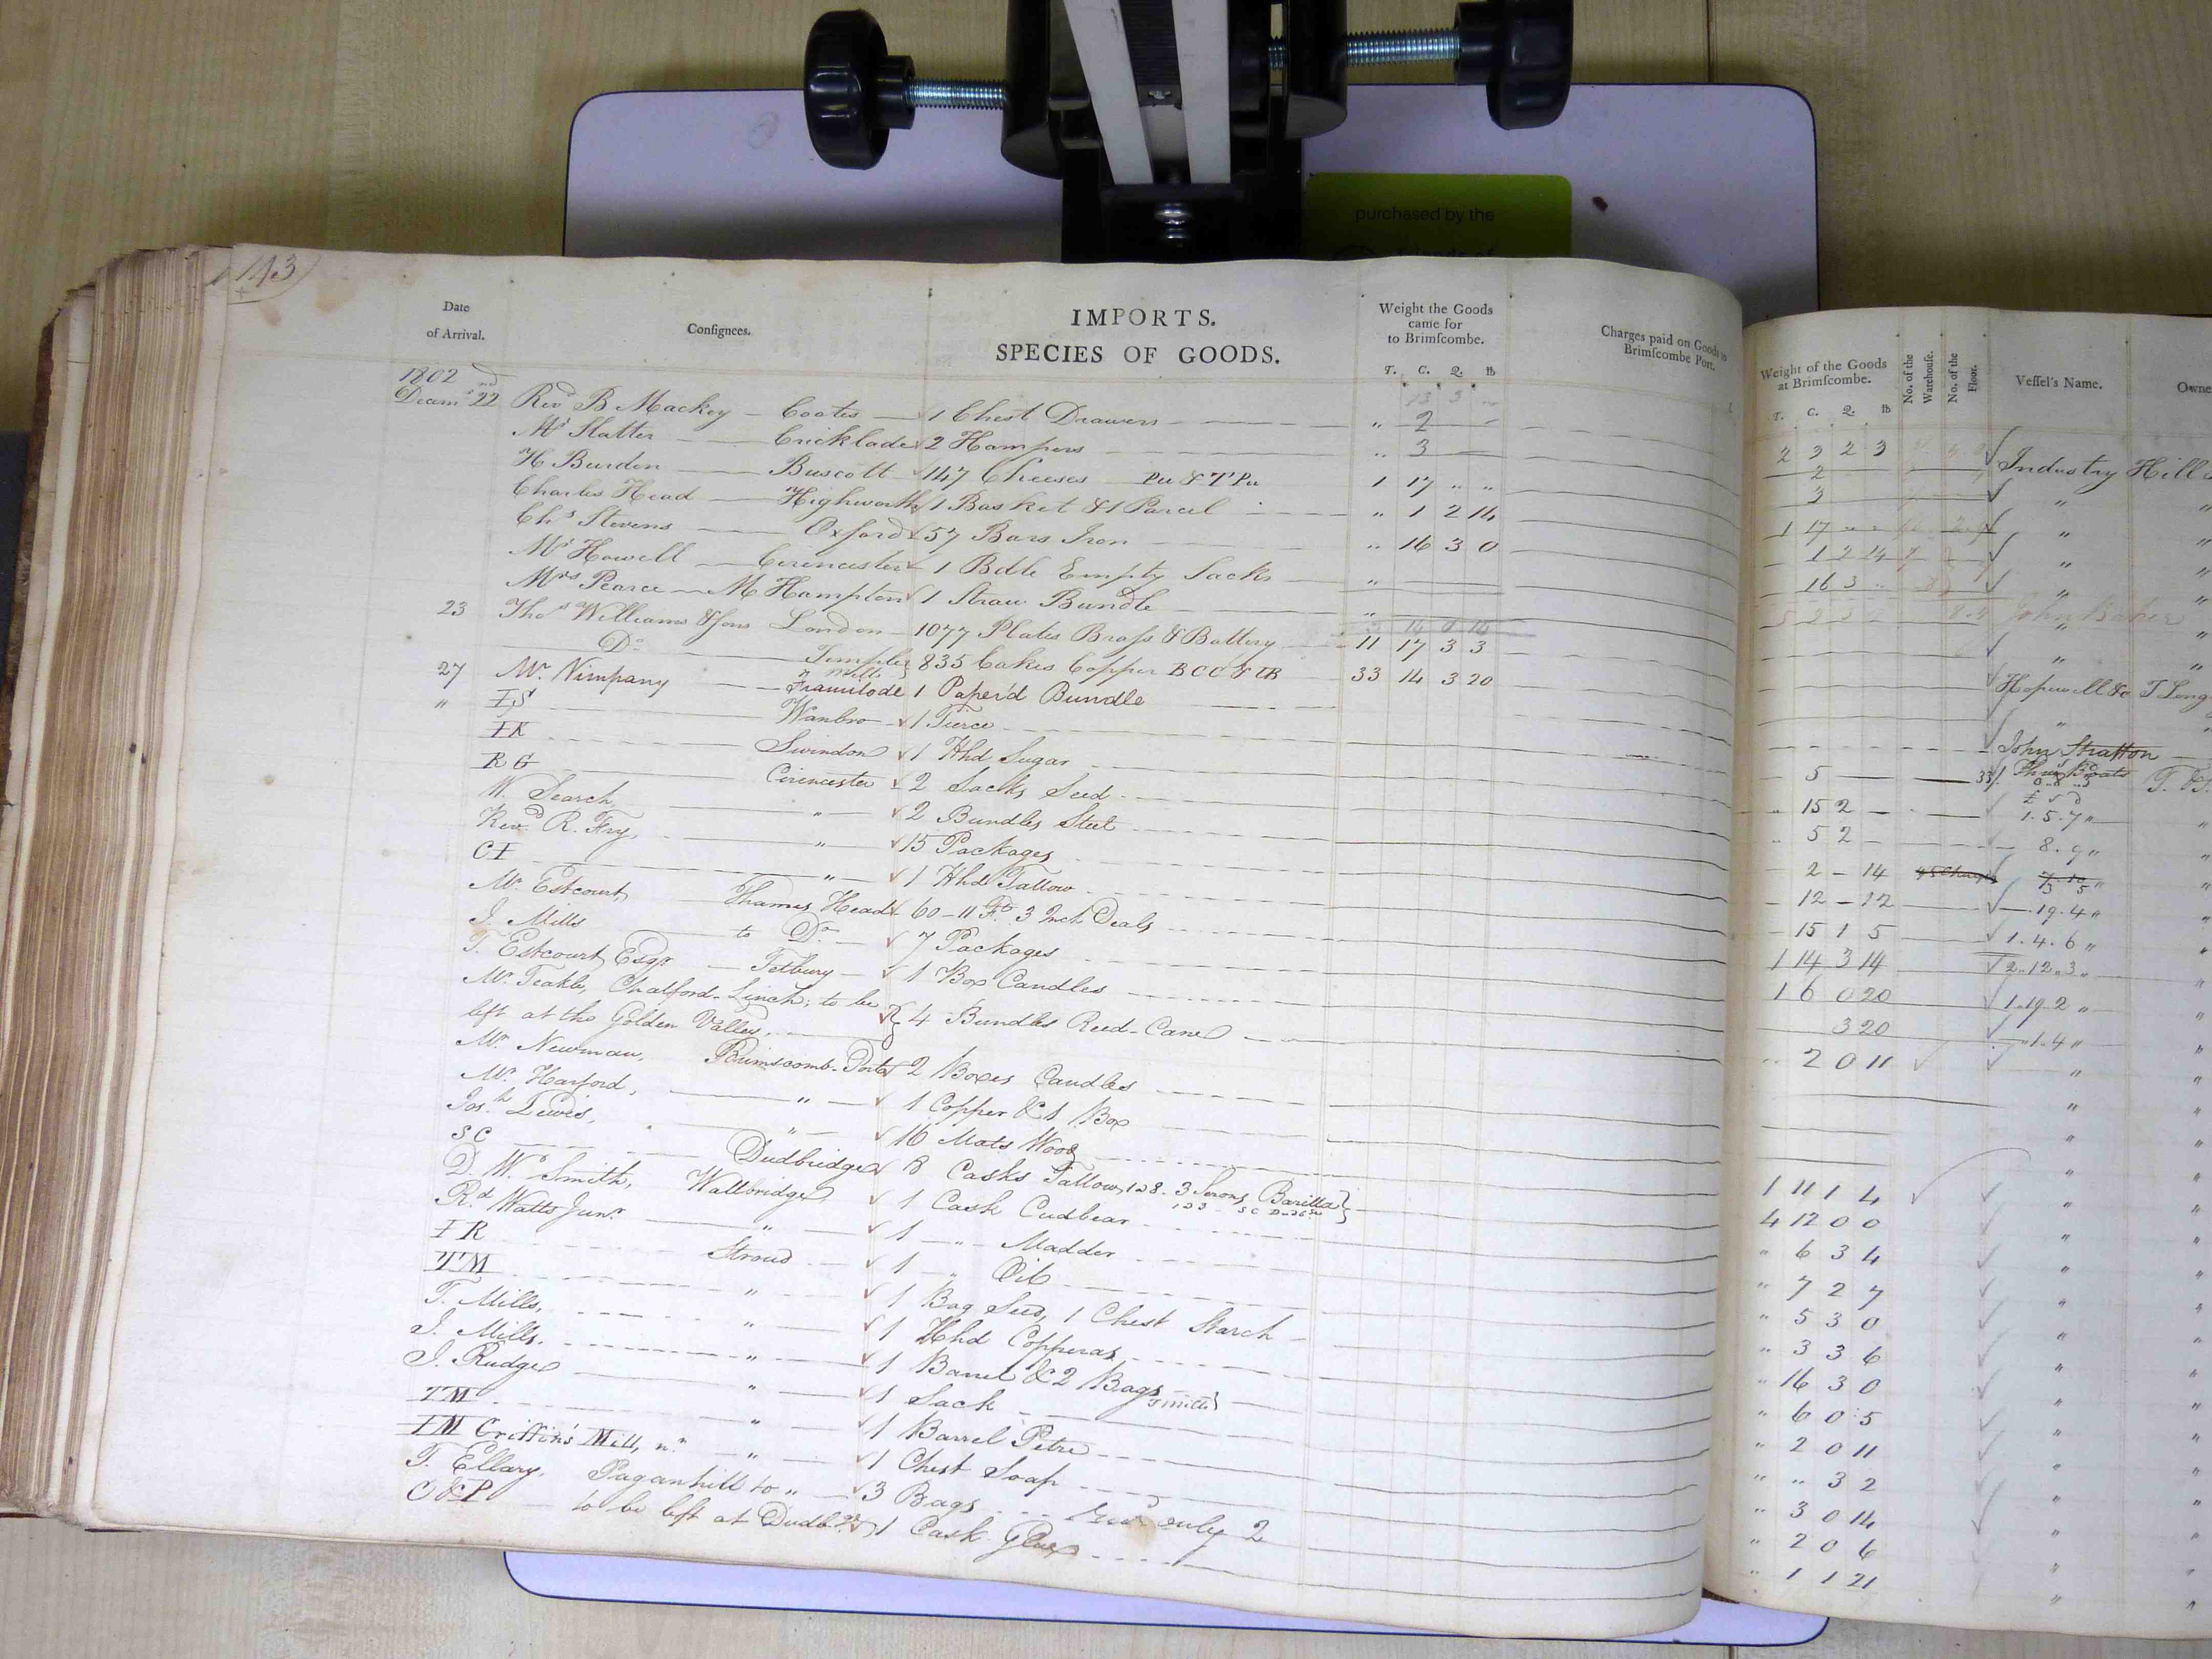 purchased by the
143
Date
of Arrival.
Consignees.
IMPORTS.
SPECIES OF GOODS.
Weight the Goods
came for
to Brimscombe.
T. C. Q. lb
Charges paid on Goods to
Brimscombe Port.
Weight of the Goods
at Brimscombe.
T. C. Q. lb
No. of the
Warehouse.
No. of the
Floor.
Vessel's Name.
Owne
1802
Decemr 22nd Revd B Mackey — Coates — 1 Chest Drawers " 2
Mr Slatter — Cricklade 2 Hampers " 3
H Burdon — Buscott 147 Cheeses Pu & TPu 1 17 " "
Charles Head — Highworth 1 Basket & 1 Parcel " 1 2 14
Chs Stevens — Oxford 57 Bars Iron " 16 3 0
Mr Howell — Cirencester 1 Bdle Empty Sacks "
Mrs Pearce — M Hampton 1 Straw Bundle "
23 Thos Williams & Sons London 1077 Plates Brass & Battery 11 17 3 3
Do Temple Mills 835 Cakes Copper BCC & IB 33 14 3 20
27 Mr. Nimpany — Framilode 1 Paper'd Bundle
" IS — Wanbro 1 Tierce
IK — Swindon 1 Hhd Sugar
RG — Cirencester 2 Sacks Seed
W. Search, " 2 Bundles Steel
Revd R. Fry, " 15 Packages
CI " 1 Hhd Tallow
Mr. Estcourt, Thames Head 60 - 11 Ft 3 Inch Deals
J. Mills to Do 7 Packages
T. Estcourt Esqr — Tetbury 1 Box Candles
Mr. Teakle, Chalford-Linch; to be
left at the Golden Valley 4 Bundles Reed-Cane
Mr. Newman, Brimscomb-Port 2 Boxes Candles
Mr. Harford, " 1 Copper & 1 Box
Josh Lewis, " 16 Mats Wood
SC — Dudbridge 8 Casks Tallow, 128. 3 Serons Barilla
D. Wm Smith, Wallbridge 1 Cask Cudbear
Rd. Watts Junr. " 1 " Madder
IR Stroud 1 " Oil
TM " 1 Bag Seed, 1 Chest Starch
T. Mills, " 1 Hhd Copperas
J. Mills, " 1 Barrel & 2 Bags
J. Rudge " 1 Sack
TM " 1 Barrel Petre
IM Griffin's Mill, nr " 1 Chest Soap
T. Ellary, Paganhill to " 3 Bags Recd only 2
C&P to be left at Dudbge 1 Cask Glue
2 3 2 3 Industry Hill
2
3
1 17
1 2 14
16 3
John Baker
Hopewell &c T Long
John Stratton
5
15 2 1.5.7
5 2 8.9
2 - 14
12 - 12 19.4
15 1 5 1.4.6
1 14 3 14 2.12.3
1 6 0 20 1.19.2
3 20 1.4
2 0 11
1 11 1 4
4 12 0 0
" 6 3 4
" 7 2 7
" 5 3 0
" 3 3 6
" 16 3 0
" 6 0 5
" 2 0 11
" " 3 2
" 3 0 14
" 2 0 6
" 1 1 21